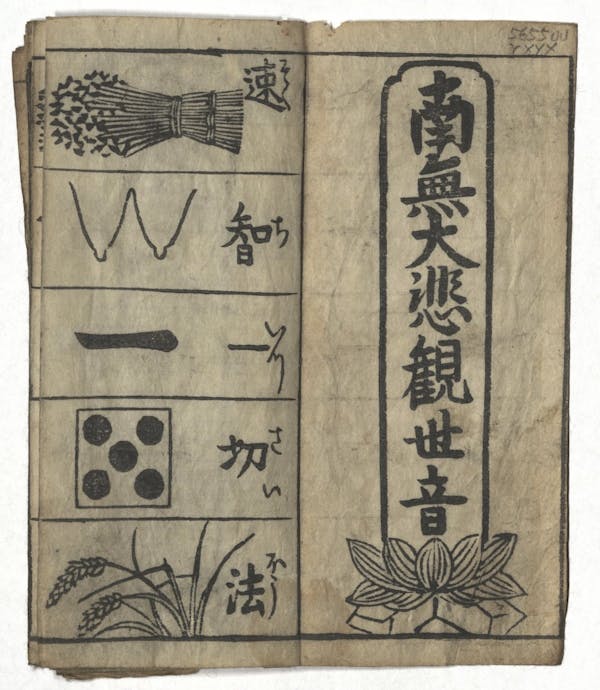 南無大悲観世音
速 そく
智 ち
一 いつ
一
切 さい
法 ほう